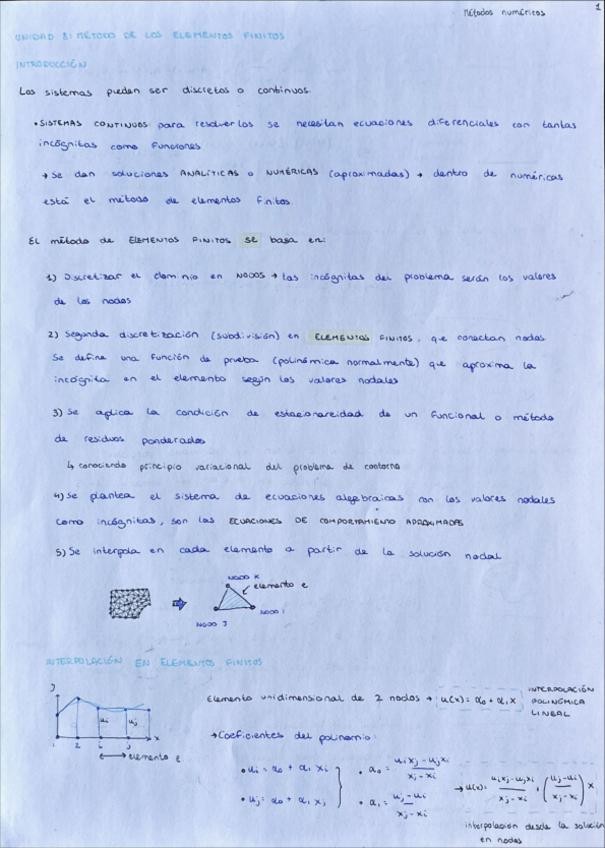 Métodos numéricos
1
UNIDAD 8: MÉTODO DE LOS ELEMENTOS FINITOS
INTRODUCCIÓN
Los sistemas pueden ser discretos o continuos.
• SISTEMAS CONTINUOS para resolverlos se necesitan ecuaciones diferenciales con tantas
incógnitas como funciones
→ Se dan soluciones ANALÍTICAS o NUMÉRICAS (aproximadas) → dentro de numéricas
está el método de elementos finitos.
El método de ELEMENTOS FINITOS se basa en:
1) Discretizar el dominio en NODOS → las incógnitas del problema serán los valores
de los nodos
2) Segunda discretización (subdivisión) en ELEMENTOS FINITOS, que conectan nodos
Se define una función de prueba (polinómica normalmente) que aproxima la
incógnita en el elemento según los valores nodales
3) Se aplica la condición de estacionareidad de un funcional o método
de residuos ponderados
↳ conociendo principio variacional del problema de contorno
4) Se plantea el sistema de ecuaciones algebraicas con los valores nodales
como incógnitas, son las ECUACIONES DE COMPORTAMIENTO APROXIMADAS
5) Se interpola en cada elemento a partir de la solución nodal
NODO K
elemento e
NODO i
NODO J
INTERPOLACIÓN EN ELEMENTOS FINITOS
Elemento unidimensional de 2 nodos → u(x) = α₀ + α₁x
INTERPOLACIÓN
POLINÓMICA
LINEAL
ui uj
x
1 2 i j
elemento e
→ Coeficientes del polinomio:
• ui = α₀ + α₁ xi
• uj = α₀ + α₁ xj
• α₀ = (ui xj - uj xi) / (xj - xi)
• α₁ = (uj - ui) / (xj - xi)
→ u(x) = (ui xj - uj xi) / (xj - xi) + ((uj - ui) / (xj - xi)) x
interpolación desde la solución
en nodos